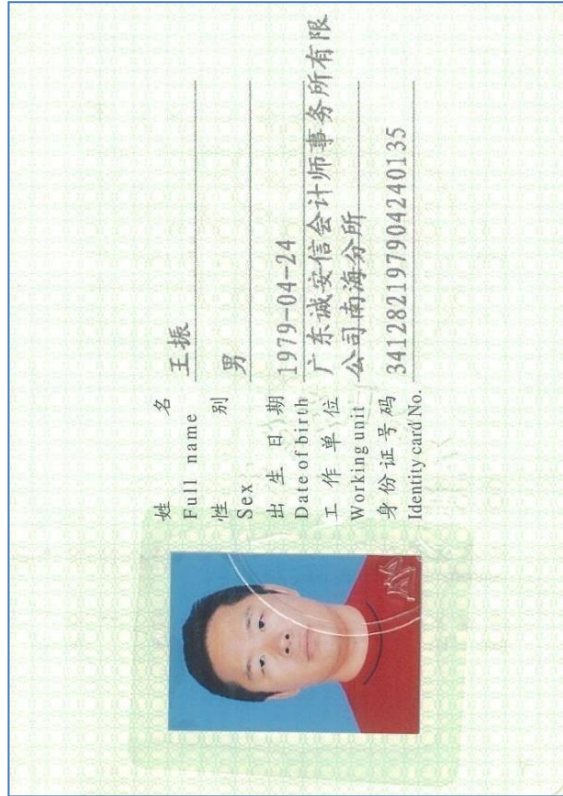 姓 名 王振
Full name
性 别 男
Sex
出 生 日 期 1979-04-24
Date of birth
工 作 单 位 广东诚安信会计师事务所有限
Working unit 公司南海分所
身份证号码 341282197904240135
Identity card No.